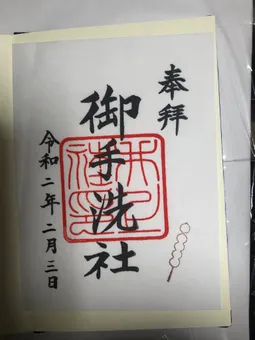 奉拝
御手洗社
令和二年二月三日